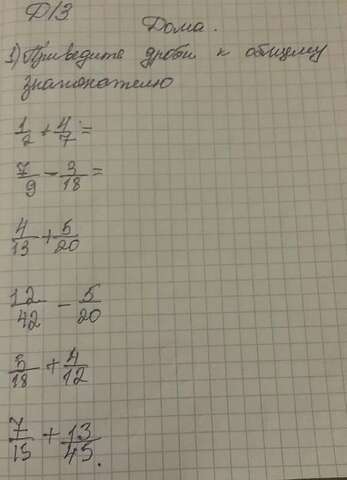 Д/З
Дома.
1) Приведите дроби к общему
знаменателю
1/2 + 4/7 =
7/9 - 3/18 =
4/13 + 5/20
12/42 - 5/20
5/18 + 4/12
7/15 + 13/45.